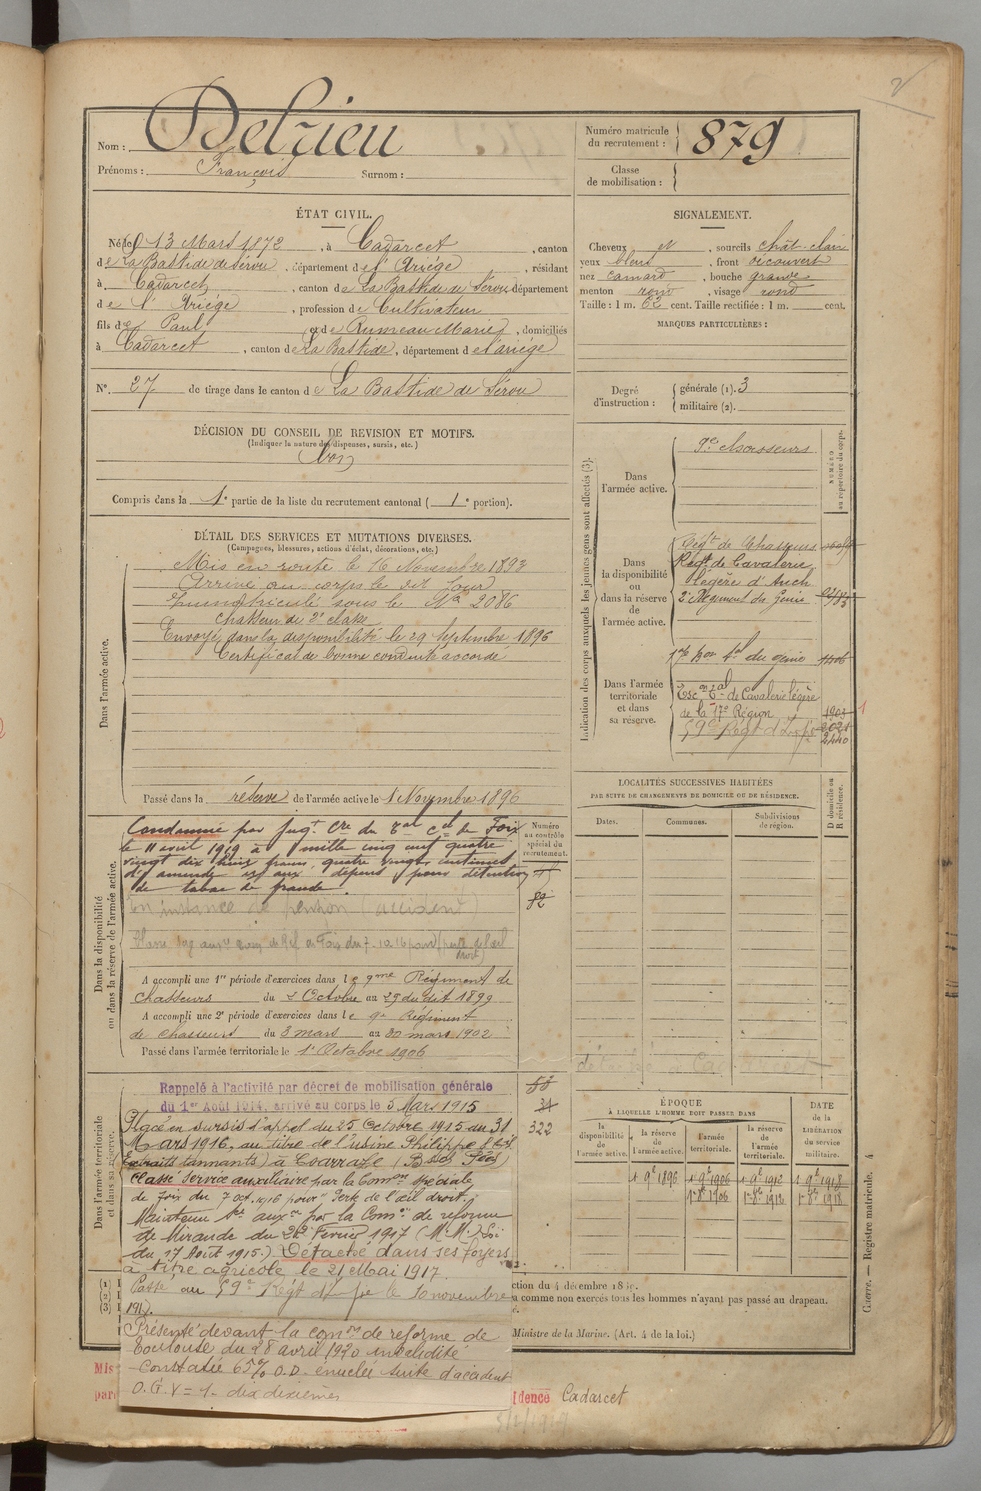 2
Nom : Delrieu
Prénoms : François Surnom :
Numéro matricule du recrutement : 879
Classe de mobilisation :
ÉTAT CIVIL.
Né le 13 Mars 1872, à Cadarcet, canton
de La Bastide de Sérou, département de l'Ariége, résidant
à Cadarcet, canton de La Bastide de Sérou département
de l'Ariége, profession de Cultivateur
fils de Paul et de Marie, domiciliés
à Cadarcet, canton de La Bastide, département de l'ariége
N° 27 de tirage dans le canton de La Bastide de Sérou
SIGNALEMENT.
Cheveux , sourcils chât-clair
yeux bleus, front découvert
nez camard, bouche grande
menton rond, visage rond
Taille : 1 m. cent. Taille rectifiée : 1 m. cent.
MARQUES PARTICULIÈRES :
Degré d'instruction : générale (1). 3
militaire (2).
DÉCISION DU CONSEIL DE REVISION ET MOTIFS.
(Indiquer la nature des dispenses, sursis, etc.)
Bon
Compris dans la 1e partie de la liste du recrutement cantonal ( 1e portion).
DÉTAIL DES SERVICES ET MUTATIONS DIVERSES.
(Campagnes, blessures, actions d'éclat, décorations, etc.)
Dans l'armée active.
Mis en route le 16 Novembre 1893
Arrivé au corps le dit jour
Immatriculé sous le No 2086
chasseur de 2e classe
Envoyé dans la disponibilité le 29 Septembre 1896
Certificat de bonne conduite accordé
Passé dans la réserve de l'armée active le 1 Novembre 1896
Dans la disponibilité ou dans la réserve de l'armée active.
Condamné par jugt. Cre du Bal Cel de Foix
le 11 avril 1919 à mille cinq cent quatre
vingt dix huit francs, quatre vingt centimes
d'amende et aux dépens, pour détention
de tabac de fraude.
En instance de pension (accident)
Numéro au contrôle spécial du recrutement.
82
A accompli une 1re période d'exercices dans le 9me Régiment de
chasseurs du 2 Octobre au 29 du dit 1899
A accompli une 2e période d'exercices dans le 9e Régiment
de chasseurs du 3 mars au 30 mars 1902
Passé dans l'armée territoriale le 1e Octobre 1906
Dans l'armée territoriale et dans sa réserve.
Rappelé à l'activité par décret de mobilisation générale
du 1er Août 1914, arrivé au corps le 5 Mars 1915
53
31
322
Placé en sursis d'appel du 25 Octobre 1915 au 31
Mars 1916, au titre de l'usine Philippe
(Extraits tannants) à Coarraze (Bses Pées)
Classé Service auxiliaire par la Comon spéciale
de Foix du 7 oct. 1916 pour "Perte de l'œil droit.
Maintenu Sce auxre par la Comon de reforme
de Mirande du 22 Fevrier 1917 (M.M.) Loi
du 17 Août 1915.) Détaché dans ses foyers
à titre agricole le 21 Mai 1917.
Passé au 59e Régt d'Infie le 10 novembre
1917.
Présenté devant la comon de reforme de
Toulouse du 28 avril 1920 invalidité
constatée 65% O.D. énuclée suite d'accident
O.G.V = 1- dix dixiemes
Indication des corps auxquels les jeunes gens sont affectés (3).
NUMÉRO au répertoire du corps.
Dans l'armée active.
9e Chasseurs
Dans la disponibilité ou dans la réserve de l'armée active.
Régt de Chasseurs
Régt de Cavalerie
légère d'Auch
2e Régiment du Génie
Dans l'armée territoriale et dans sa réserve.
17e Bon tal du génie
Escon Tal de Cavalerie légère
de la 17e Région 1903
59e Régt d'Infie 2021
2440
1
LOCALITÉS SUCCESSIVES HABITÉES
PAR SUITE DE CHANGEMENTS DE DOMICILE OU DE RÉSIDENCE.
D domicile ou R résidence.
Dates. Communes. Subdivisions de région.
ÉPOQUE
À LAQUELLE L'HOMME DOIT PASSER DANS
la disponibilité de l'armée active.
la réserve de l'armée active.
l'armée territoriale.
la réserve de l'armée territoriale.
DATE de la LIBÉRATION du service militaire.
1 9e 1896 1 9e 1906 1 9e 1912 1 9e 1918
1e 8e 1906 1e 8e 1912 1e 8e 1918
(1)
(2)
(3)
ction du 4 décembre 18
comme non exercés tous les hommes n'ayant pas passé au drapeau.
Ministre de la Marine. (Art. 4 de la loi.)
Mis
par
dence Cadarcet
Guerre. — Registre matricule. 4